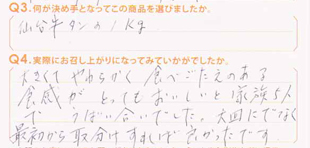 Q3.何が決め手となってこの商品を選びましたか。
仙台牛タンの1Kg
Q4.実際にお召し上がりになってみていかがでしたか。
大きくて やわらかく 食べごたえのある
食感が とってもおいしいと 家族5人
で うばい合いでした。大皿にでなく
最初から取分けすれば良かったです